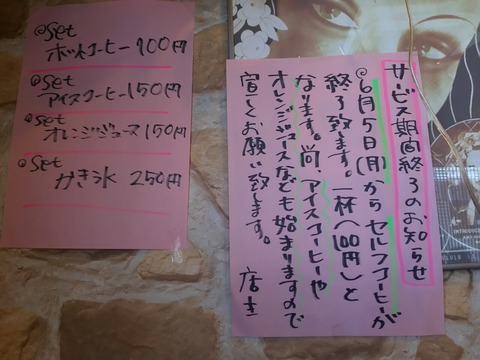 ◎set
ホットコーヒー 100円
◎set
アイスコーヒー 150円
◎set
オレンジジュース 150円
◎set
かき氷 250円
サービス期間終了のお知らせ
◎6月5日(月)からセルフコーヒーが
終了致します。一杯(100円)と
なります。尚、アイスコーヒーや
オレンジジュースなども始まりますので
宜しくお願い致します。
店主